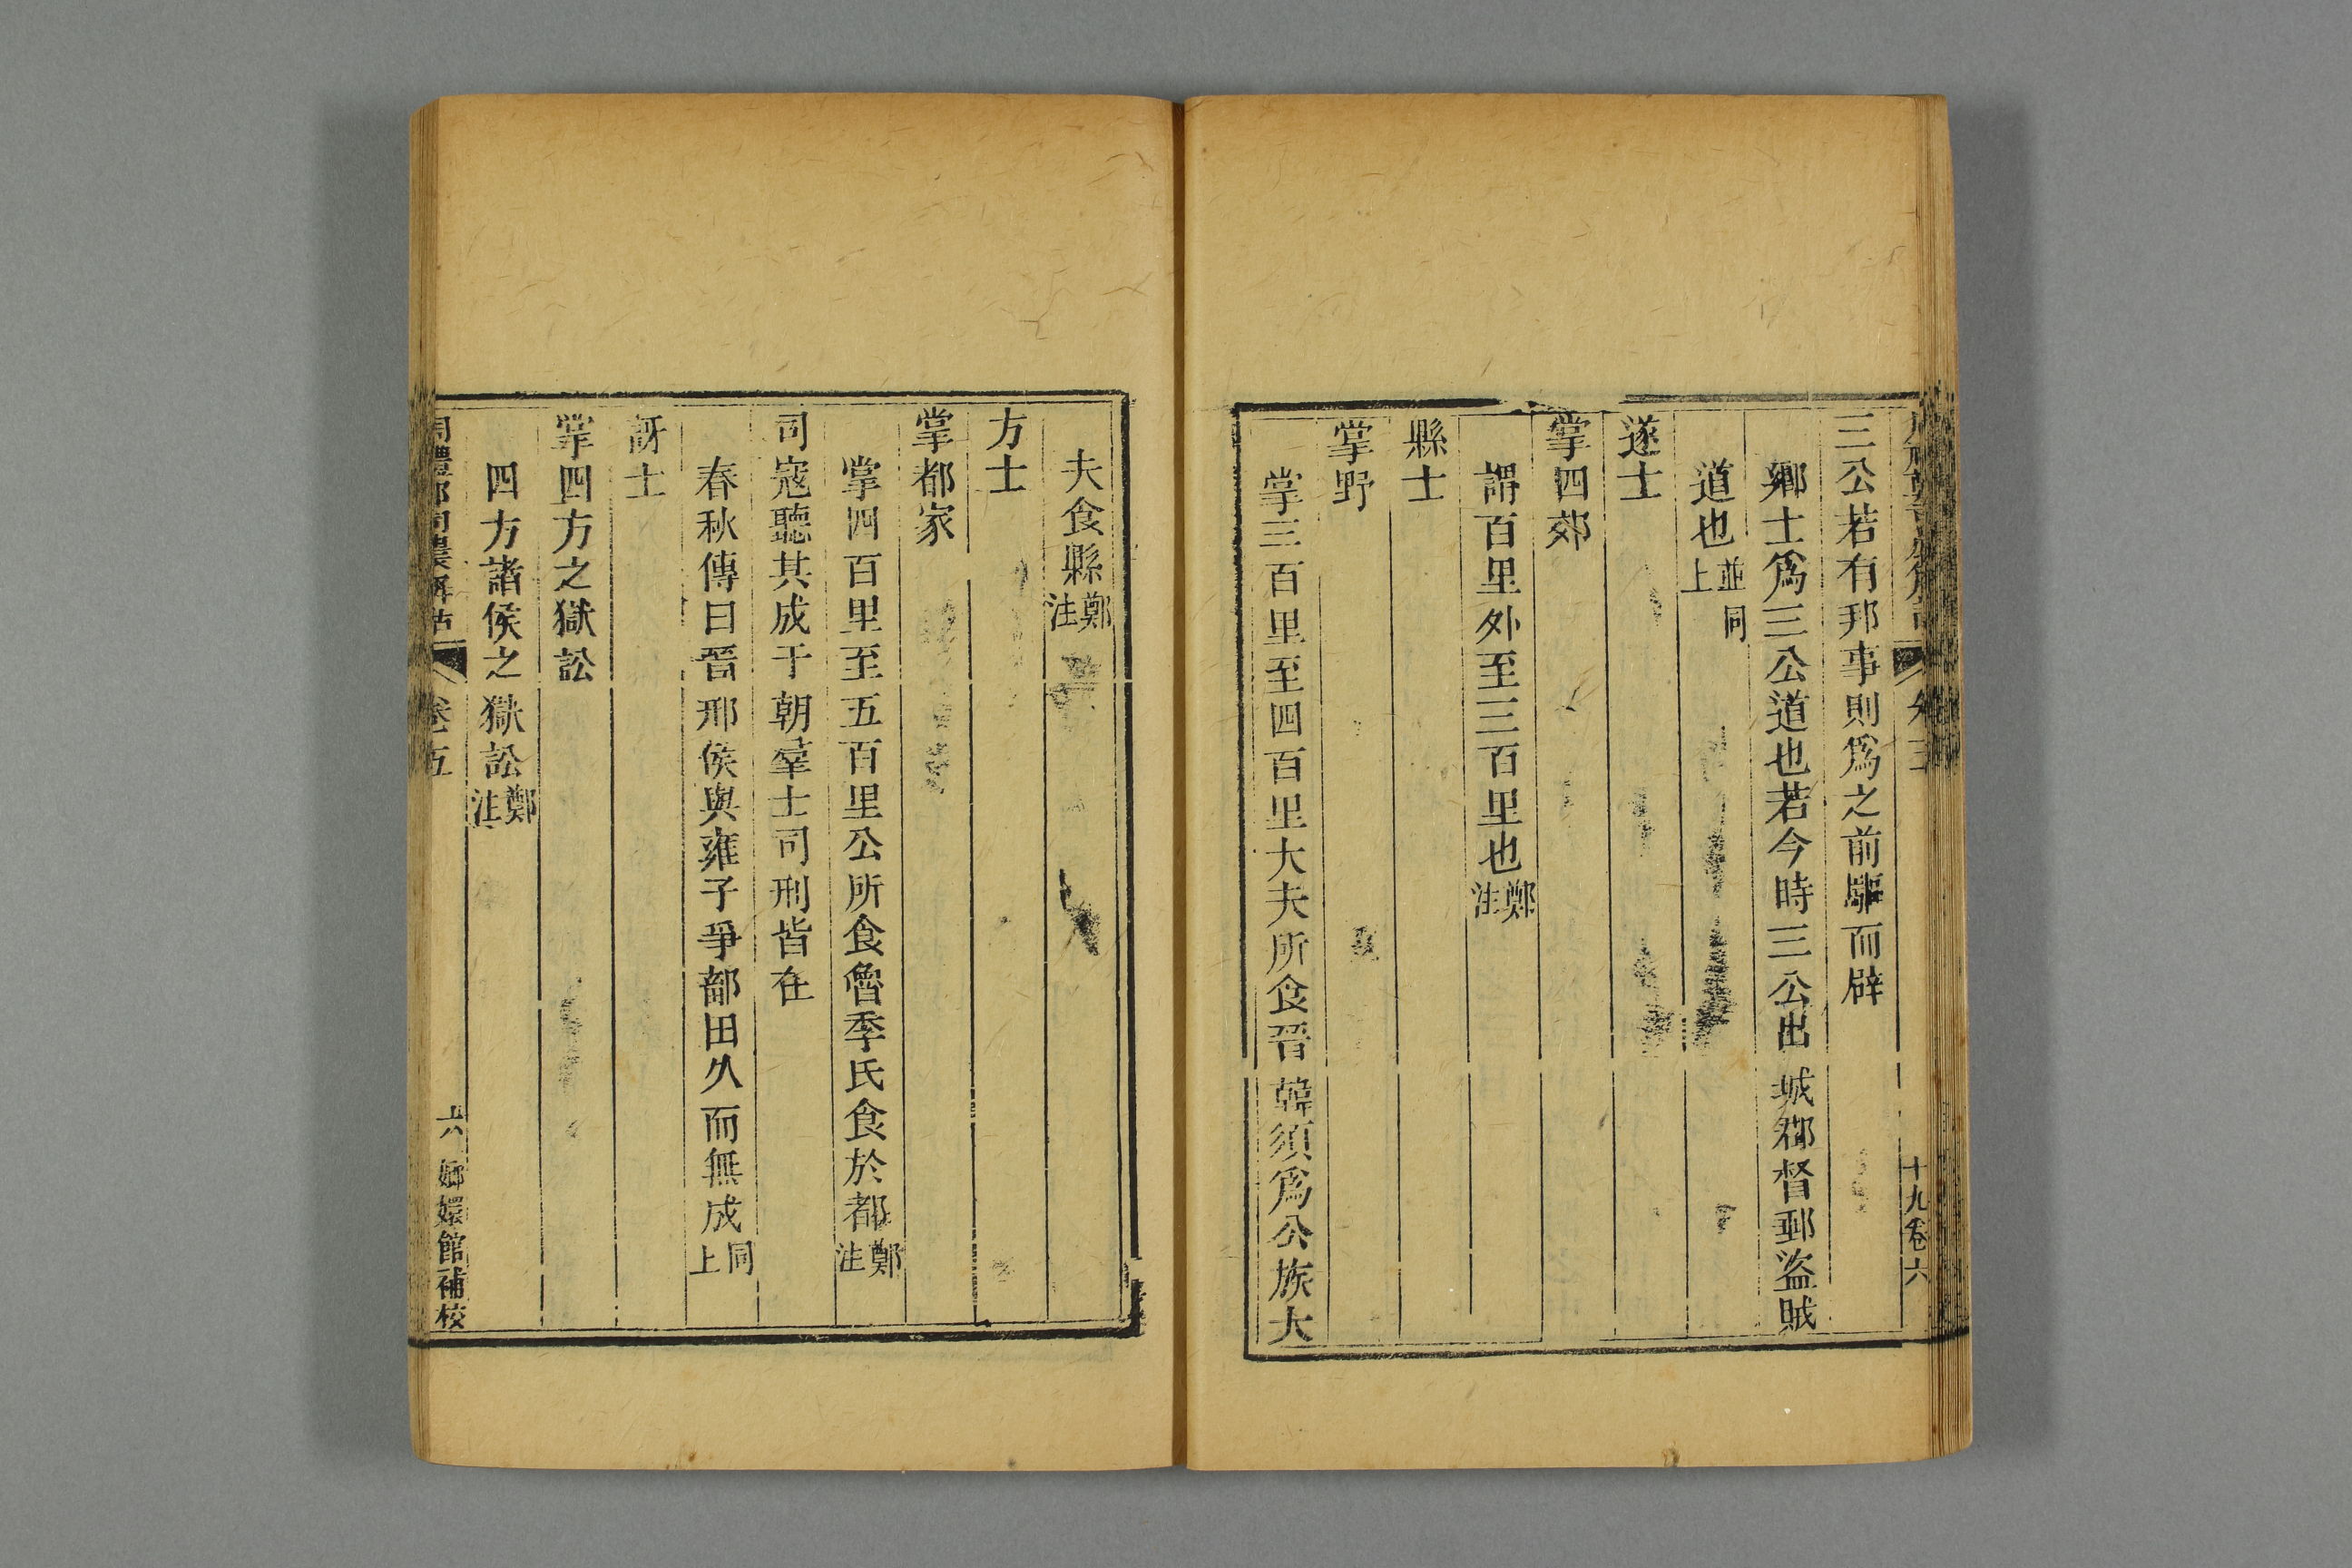 三公若有邦事則爲之前驅而辟
鄉士爲三公道也若今時三公出城郡督郵盜賊
道也並同上
遂士
掌四郊
謂百里外至三百里也鄭注
縣士
掌野
掌三百里至四百里大夫所食晉韓須爲公族大
十九卷六
夫食縣鄭注
方士
掌都家
掌四百里至五百里公所食魯季氏食於都鄭注
司寇聽其成于朝羣士司刑皆在
春秋傳曰晉邢侯與雍子爭鄐田久而無成同上
訝士
掌四方之獄訟
四方諸侯之獄訟鄭注
周禮鄭司農解詁 卷五 六 嫏嬛館補校